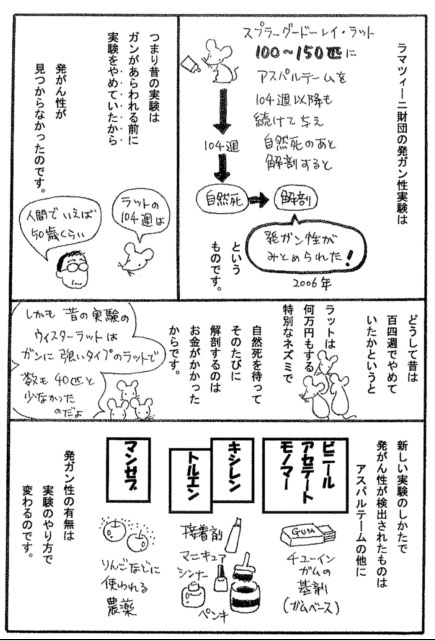 ラマツィーニ財団の発ガン性実験は
スプラーグードーレイ・ラット
100〜150匹に
アスパルテームを
104週以降も
続けて与え
自然死のあと
解剖すると
104週
自然死
解剖
発ガン性が
みとめられた!
2006年
という
ものです。
つまり昔の実験は
ガンがあらわれる前に
実験をやめていたから
発がん性が
見つからなかったのです。
ラットの
104週は
人間でいえば
50歳くらい
どうして昔は
百四週でやめて
いたかというと
ラットは
何万円もする
特別なネズミで
自然死を待って
そのたびに
解剖するのは
お金がかかった
からです。
しかも昔の実験の
ウィスターラットは
ガンに強いタイプのラットで
数も40匹と
少なかった
のだよ
新しい実験のしかたで
発がん性が検出されたものは
アスパルテームの他に
ビニール
アセテート
モノマー
GUM
チューイン
ガムの
基剤
(ガムベース)
キシレン
トルエン
接着剤
マニキュア
シンナー
ペンキ
マンゼブ
りんごなどに
使われる
農薬
発ガン性の有無は
実験のやり方で
変わるのです。